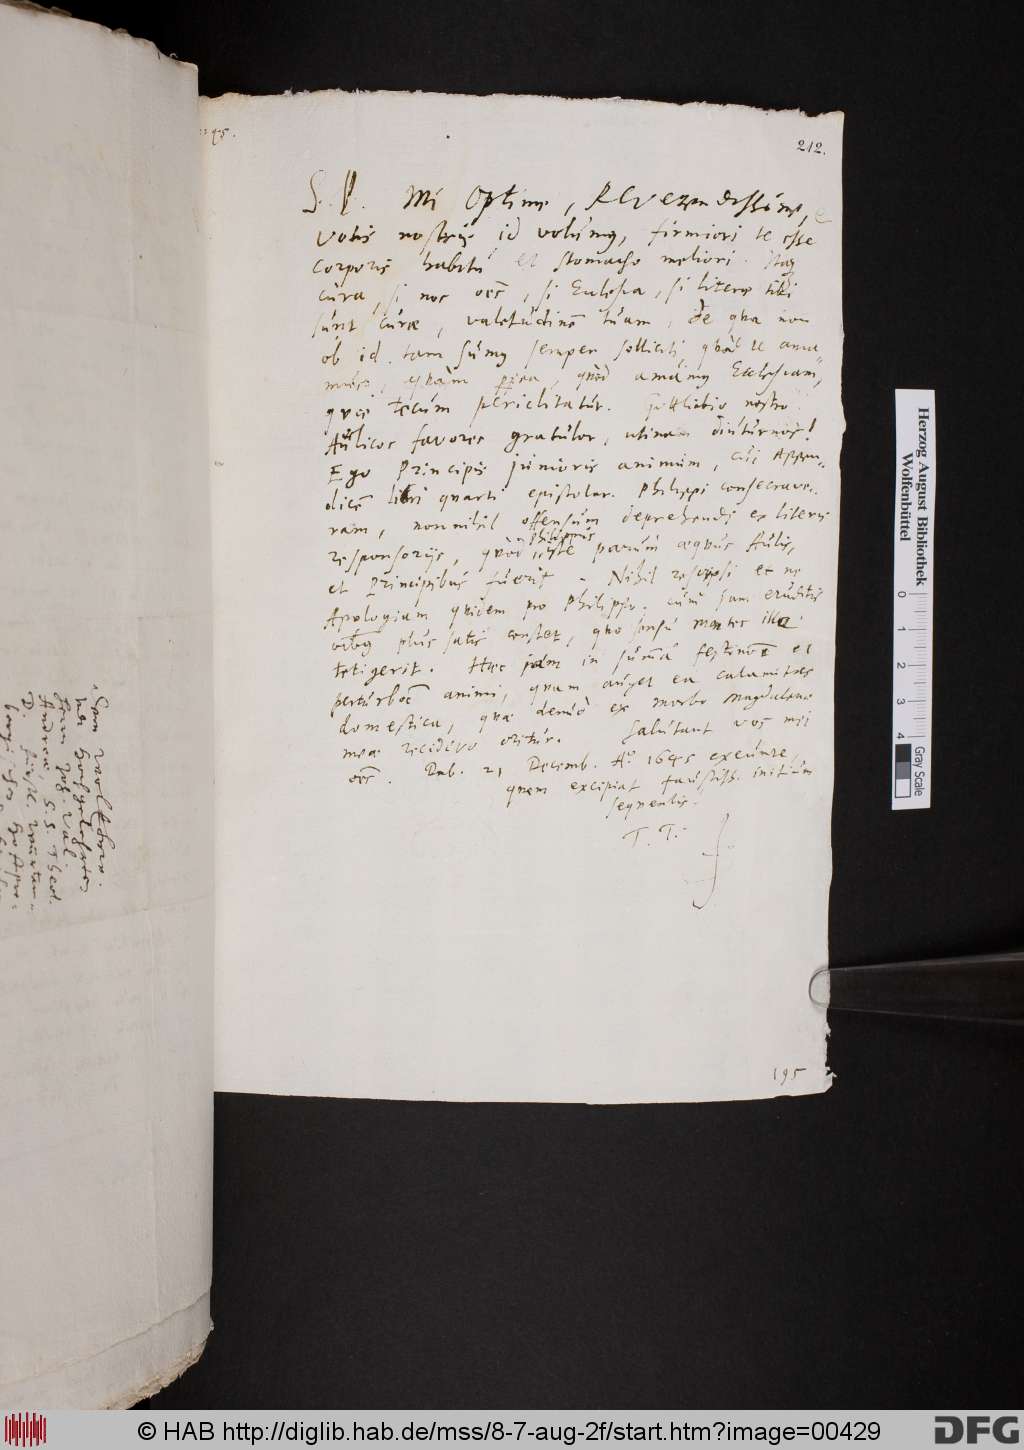 212.
S. P. Mi Optime, Reverendissime,
Votis nostris id volumus, firmiori te esse
corporis habitu et stomacho meliori. Itaq
cura, si nos oēs, si Ecclesia, si literæ tibi
sunt curæ, valetudinē tuam, de qua non
ob id tam sumus semper solliciti quòd te ama
mus, quàm quòd amamus Ecclesiam,
quæ tecum periclitatur. nostro
Aulicos favores gratulor, utinam diuturnos!
Ego Principis junioris animum, cui Appen-
dicē libri quarti epistolar. Philippi consecrave-
ram, nonnihil offensum deprehendi ex literis
Philippus
responsoriis, quòd iste parùm æquus Aulis,
et Principibus fuerit. Nihil rescripsi et ne
Apologiam quidem pro Philippo. cùm jam eruditis
oīb9 plus satis constet, quo sensu montes illa
tetigerit. Hæc jam in summa festinoē et
perturboē animi, quam auget ea calamitas
domestica, quæ denuò ex morbo Magdalenæ
meæ recidivo oritur. Salutant vos mei
oēs. Dab. 21 Decemb. Aº 1645 exeunte,
quem excipiat faustiss. initium
sequentis.
T. T.
195
Herzog August Bibliothek
Wolfenbüttel
0 1 2 3 4
Gray Scale
© HAB http://diglib.hab.de/mss/8-7-aug-2f/start.htm?image=00429
DFG